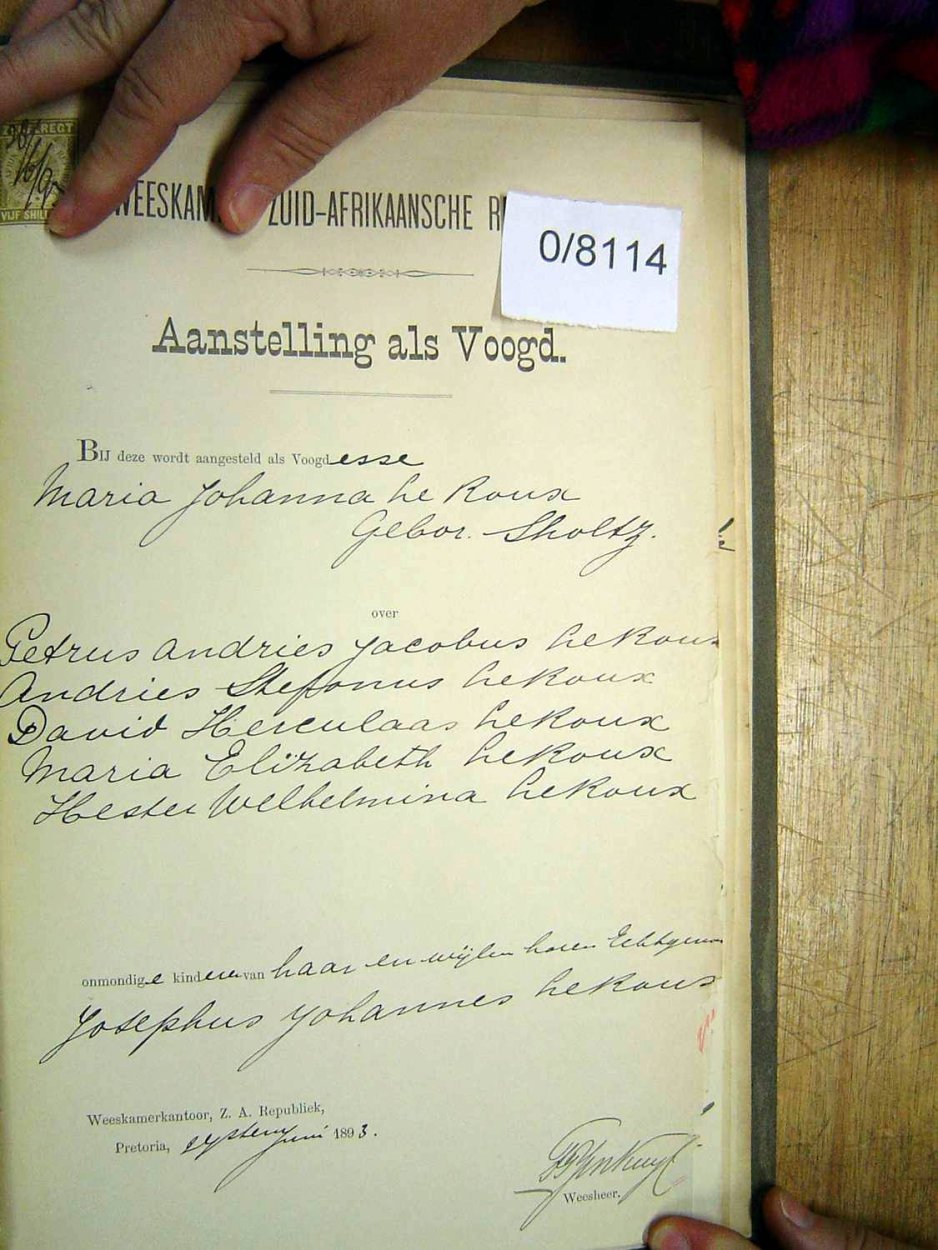 REGT
VIJF SHILL
WEESKAM ZUID-AFRIKAANSCHE R
0/8114
Aanstelling als Voogd.
BIJ deze wordt aangesteld als Voogdesse
Maria Johanna le Roux
Gebor. Sholtz.
over
Petrus Andries Jacobus le Roux
Andries Stefanus le Roux
David Herculaas le Roux
Maria Elizabeth le Roux
Hester Welhelmina le Roux
onmondige kinderen van haar en wijlen haren Echtgenoo
Josephus Johannes le Roux
Weeskamerkantoor, Z. A. Republiek,
Pretoria, Juni 1893.
Weesheer.